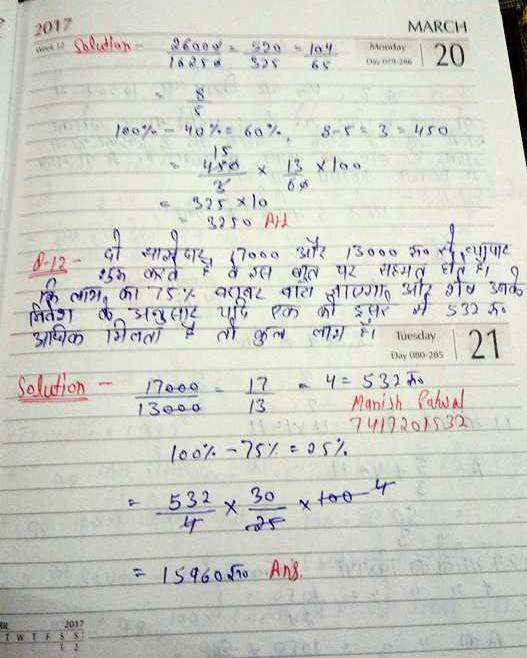 2017
MARCH
Week 12 Solution - 26000/16250 = 520/325 = 104/65
Monday
Day 079-286
20
= 8/5
100% - 40% = 60%, 8-5 = 3 = 450
15
= 450/3 × 13/60 × 100
= 325 × 10
= 3250 Ans
Q-12 - दो साझेदार, 17000 और 13000 रू० से व्यापार
शुरू करते हैं वे इस बात पर सहमत होते हैं।
कि लाभ का 75% बराबर बांटा जाएगा और शेष उनके
निवेश के अनुसार यदि एक को दूसरे से 532 रू०
अधिक मिलता है तो कुल लाभ है।
Tuesday
Day 080-285
21
Solution - 17000/13000 = 17/13 = 4 = 532 रू०
Manish
7417201532
100% - 75% = 25%
= 532/4 × 30/25 × 100 4
= 15960 रू० Ans.
2017
T W T F S S
1 2